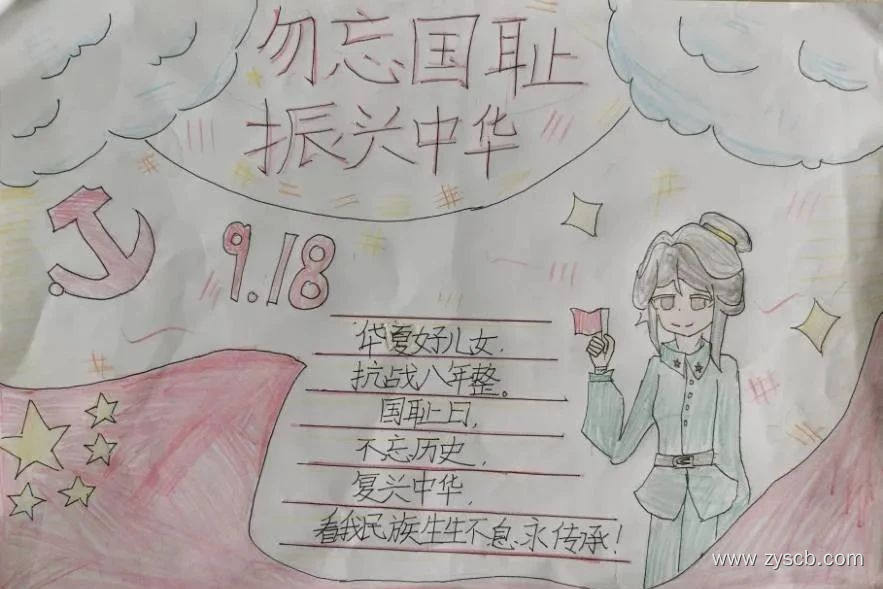 勿忘国耻
振兴中华
9.18
华夏好儿女,
抗战八年整。
国耻日,
不忘历史,
复兴中华,
看我民族生生不息、永传承!
www.zyscb.com